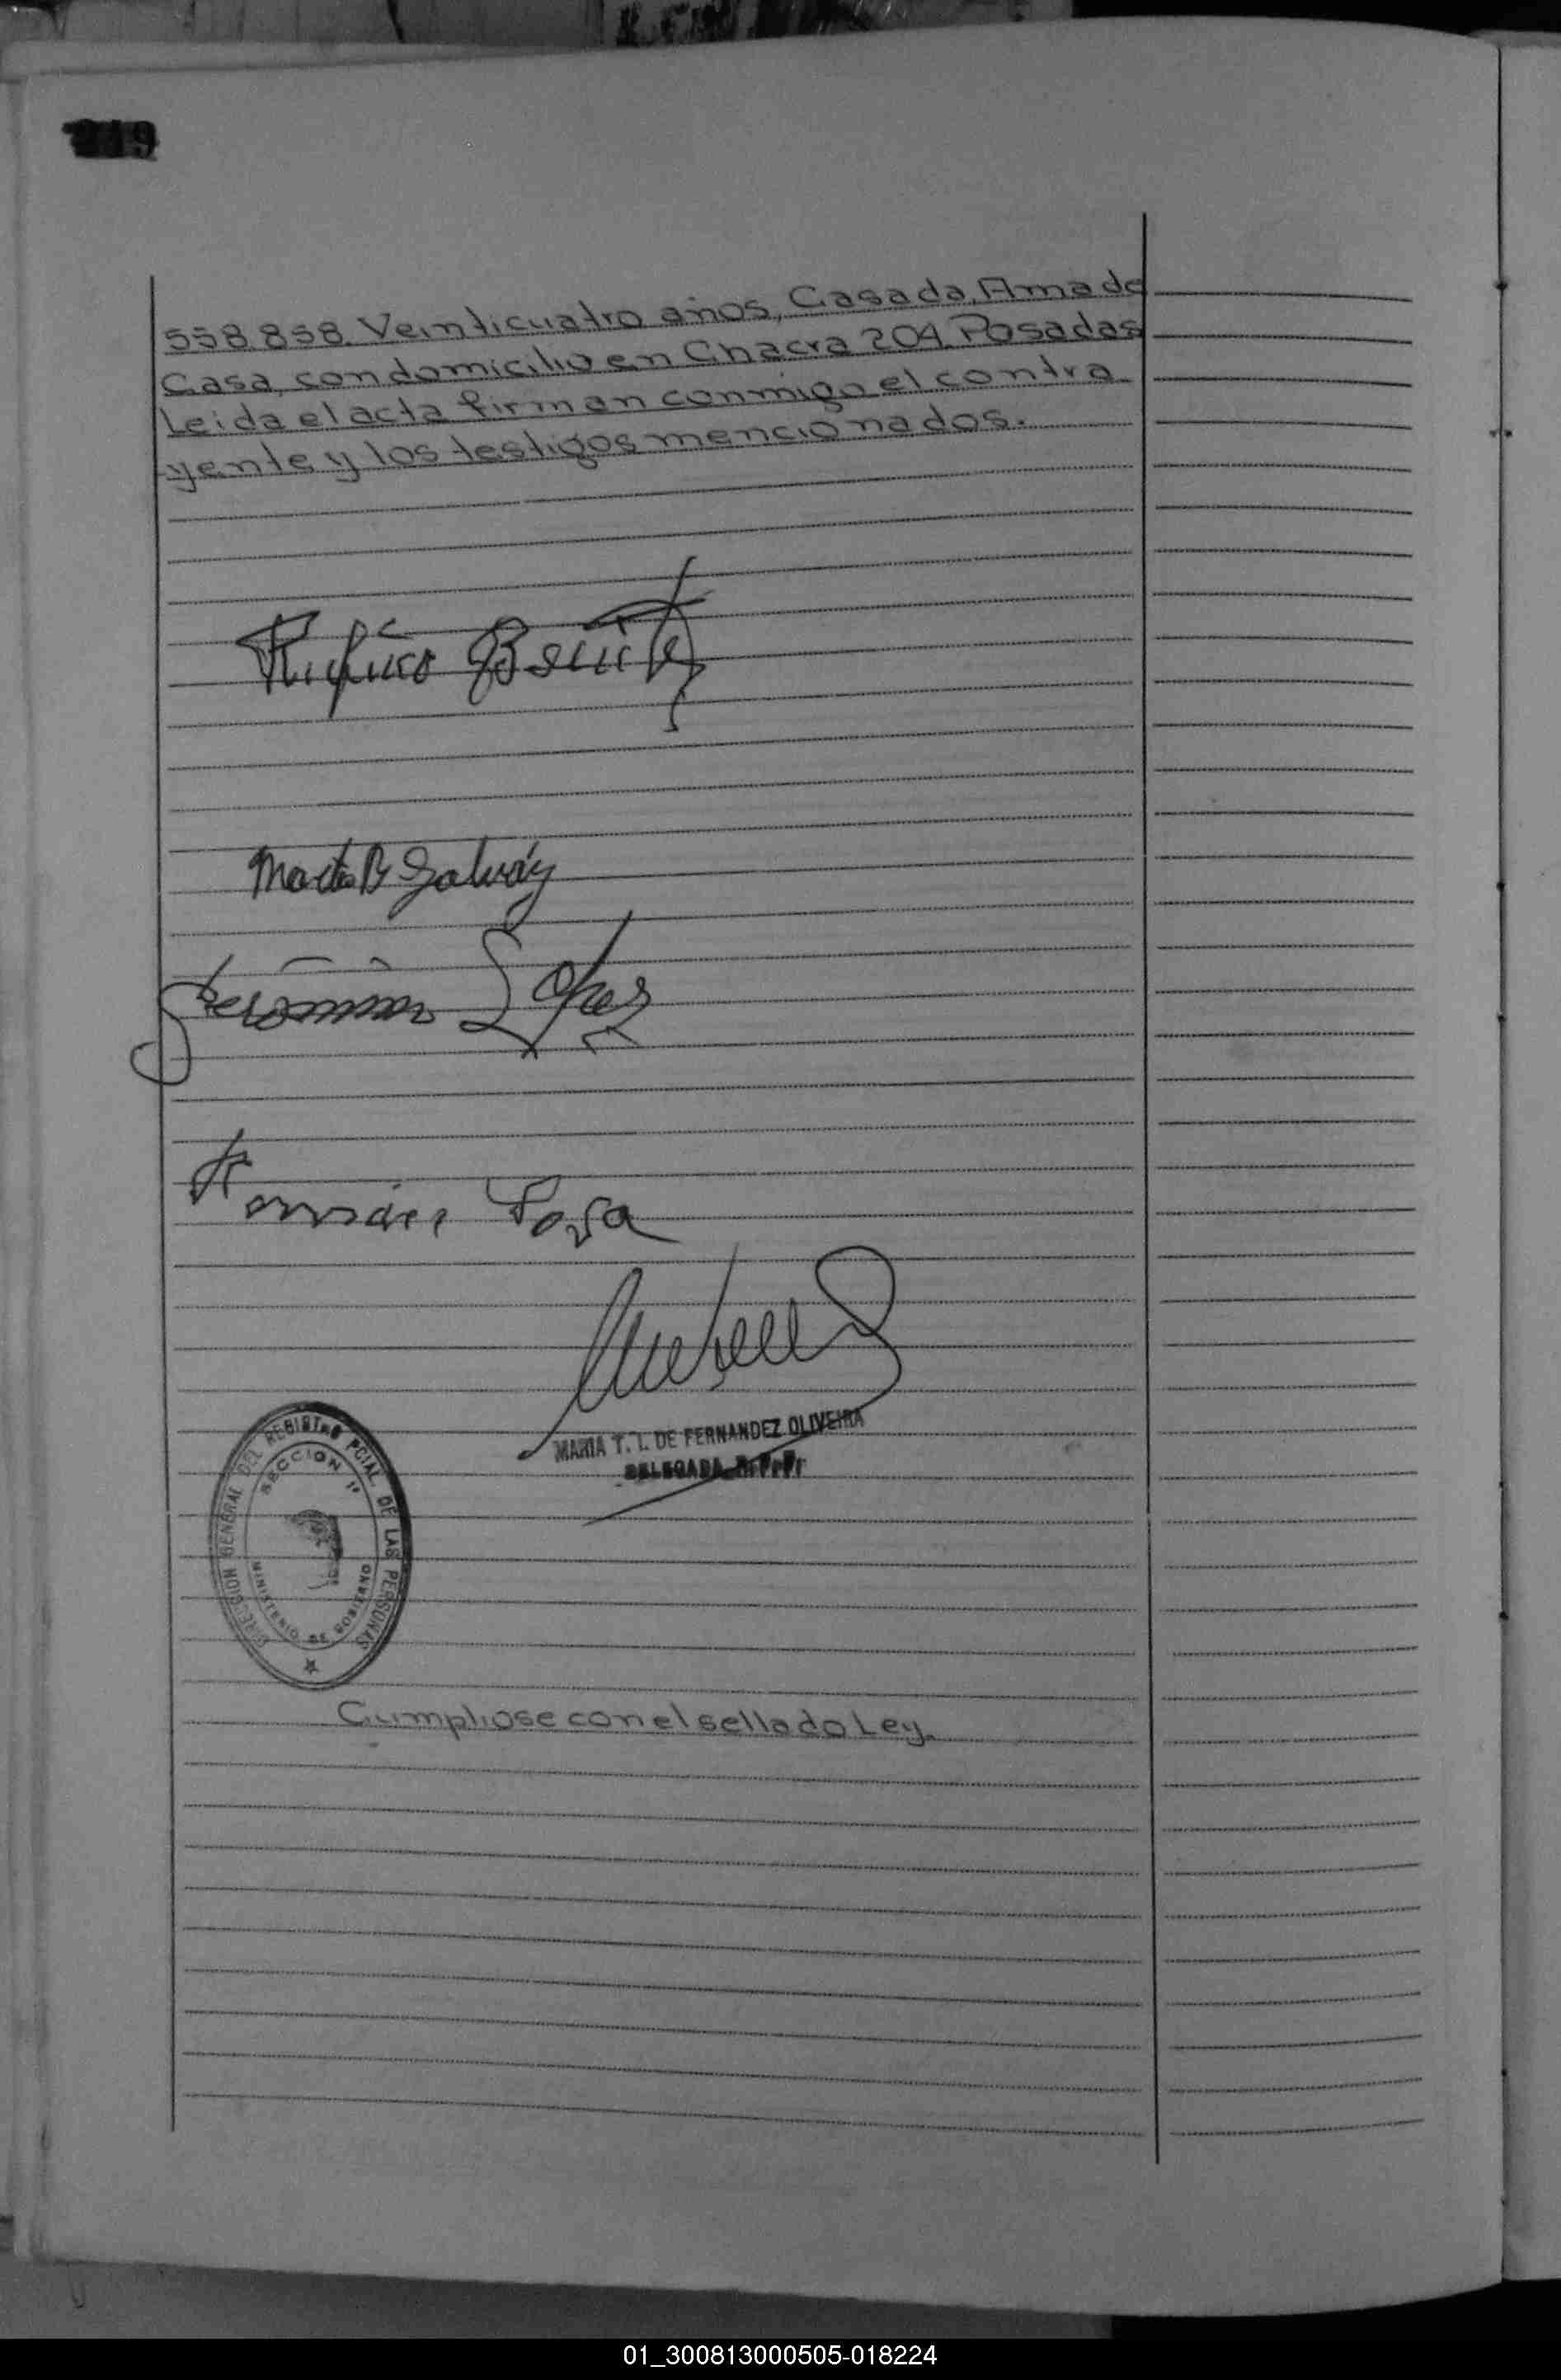 219
558.858. Veinticuatro años, Casada, Ama de
Casa, con domicilio en Chacra 204. Posadas
Leida el acta firman conmigo el contra
yente y los testigos mencionados.
Rufino Benitez
Marta B Galván
Gerónimo Lopez
Sosa
MARIA T. I. DE FERNANDEZ OLIVEIRA
DELEGADA R.P.P.
DIRECCION GENERAL DEL REGISTRO PCIAL. DE LAS PERSONAS
SECCION 1ª
MINISTERIO DE GOBIERNO
Cumpliose con el sellado Ley.
01_300813000505-018224